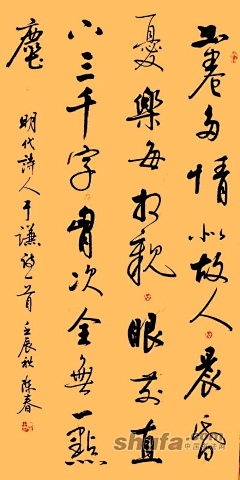 書卷多情似故人晨昏
憂樂每相親眼前直
下三千字胸次全無一點
塵
明代詩人于謙詩一首壬辰秋陈春
shufa.com
中国书法网